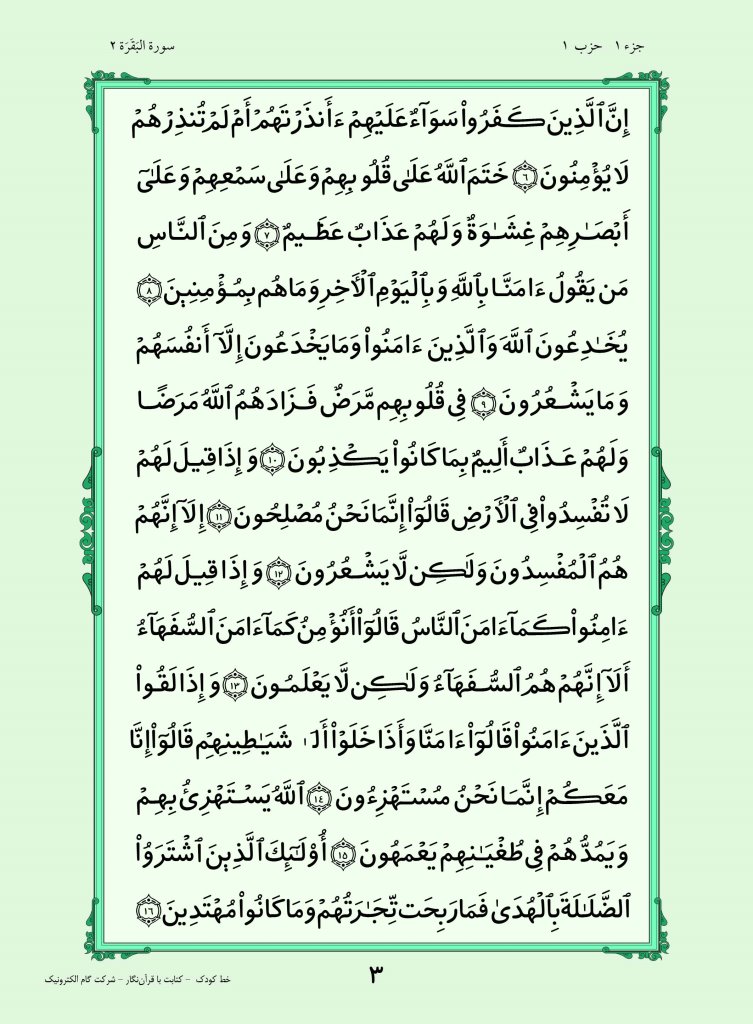 جزء ١ حزب ١
سورة البَقَرَة ٢
إِنَّ ٱلَّذِينَ كَفَرُواْ سَوَآءٌ عَلَيۡهِمۡ ءَأَنذَرۡتَهُمۡ أَمۡ لَمۡ تُنذِرۡهُمۡ
لَا يُؤۡمِنُونَ ٦ خَتَمَ ٱللَّهُ عَلَىٰ قُلُوبِهِمۡ وَعَلَىٰ سَمۡعِهِمۡ وَعَلَىٰٓ
أَبۡصَٰرِهِمۡ غِشَٰوَةٌ وَلَهُمۡ عَذَابٌ عَظِيمٌ ٧ وَمِنَ ٱلنَّاسِ
مَن يَقُولُ ءَامَنَّا بِٱللَّهِ وَبِٱلۡيَوۡمِ ٱلۡأٓخِرِ وَمَا هُم بِمُؤۡمِنِينَ ٨
يُخَٰدِعُونَ ٱللَّهَ وَٱلَّذِينَ ءَامَنُواْ وَمَا يَخۡدَعُونَ إِلَّآ أَنفُسَهُمۡ
وَمَا يَشۡعُرُونَ ٩ فِي قُلُوبِهِم مَّرَضٌ فَزَادَهُمُ ٱللَّهُ مَرَضًا
وَلَهُمۡ عَذَابٌ أَلِيمٌ بِمَا كَانُواْ يَكۡذِبُونَ ١٠ وَإِذَا قِيلَ لَهُمۡ
لَا تُفۡسِدُواْ فِي ٱلۡأَرۡضِ قَالُوٓاْ إِنَّمَا نَحۡنُ مُصۡلِحُونَ ١١ إِلَآ إِنَّهُمۡ
هُمُ ٱلۡمُفۡسِدُونَ وَلَٰكِن لَّا يَشۡعُرُونَ ١٢ وَإِذَا قِيلَ لَهُمۡ
ءَامِنُواْ كَمَآ ءَامَنَ ٱلنَّاسُ قَالُوٓاْ أَنُؤۡمِنُ كَمَآ ءَامَنَ ٱلسُّفَهَآءُ
أَلَآ إِنَّهُمۡ هُمُ ٱلسُّفَهَآءُ وَلَٰكِن لَّا يَعۡلَمُونَ ١٣ وَإِذَا لَقُواْ
ٱلَّذِينَ ءَامَنُواْ قَالُوٓاْ ءَامَنَّا وَأَذَا خَلَوۡاْ شَيَٰطِينِهِمۡ قَالُوٓاْ إِنَّا
مَعَكُمۡ إِنَّمَا نَحۡنُ مُسۡتَهۡزِءُونَ ١٤ ٱللَّهُ يَسۡتَهۡزِئُ بِهِمۡ
وَيَمُدُّهُمۡ فِي طُغۡيَٰنِهِمۡ يَعۡمَهُونَ ١٥ أُوْلَٰٓئِكَ ٱلَّذِينَ ٱشۡتَرَوُاْ
ٱلضَّلَٰلَةَ بِٱلۡهُدَىٰ فَمَا رَبِحَت تِّجَٰرَتُهُمۡ وَمَا كَانُواْ مُهۡتَدِينَ ١٦
٣
خط کودک - کتابت با قرآن‌نگار - شرکت گام الکترونیک